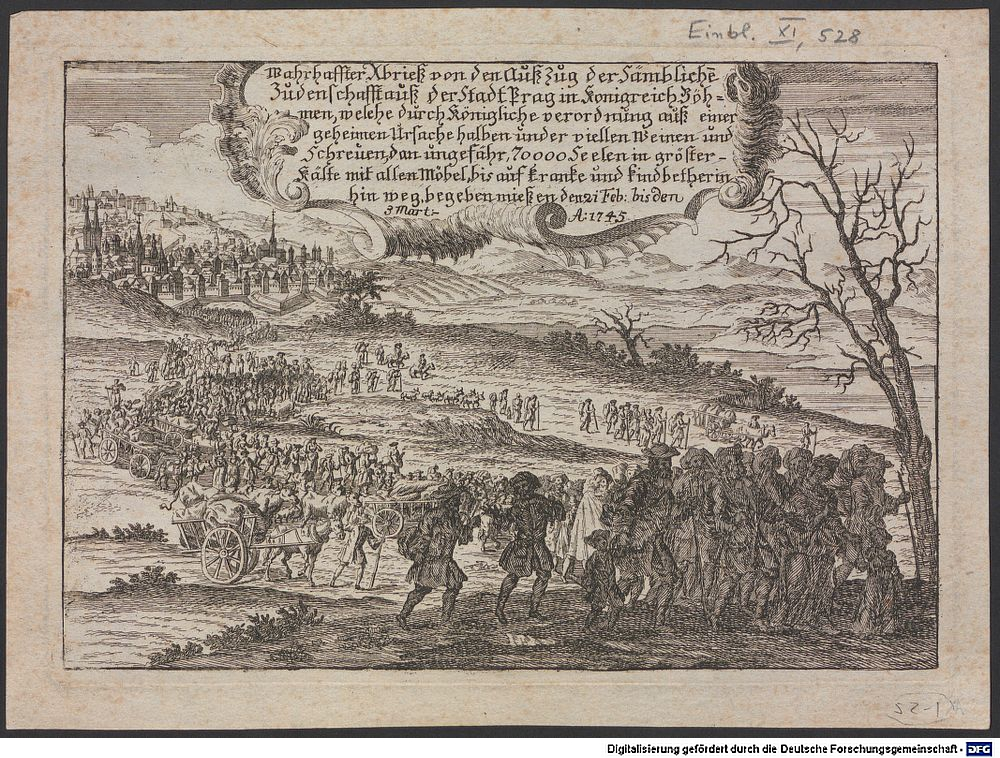 Einbl. XI, 528
Wahrhaffter Abrieß von den Außzug der Sämbliche͂
Judenschafft auß der Stadt Prag in Konigreich Böh=
men, welche durch Königliche verordnung auß einer
geheimen Ursache halben under viellen Weinen und
Schreuen, dan ungefähr, 70000 Seelen in gröster-
Kälte mit allen Möbel, bis auf Kranke und Kindbetherin
hin weg, begeben mießen den 21 Feb: bis den
8 Mart:- A: 1745
Digitalisierung gefördert durch die Deutsche Forschungsgemeinschaft - DFG